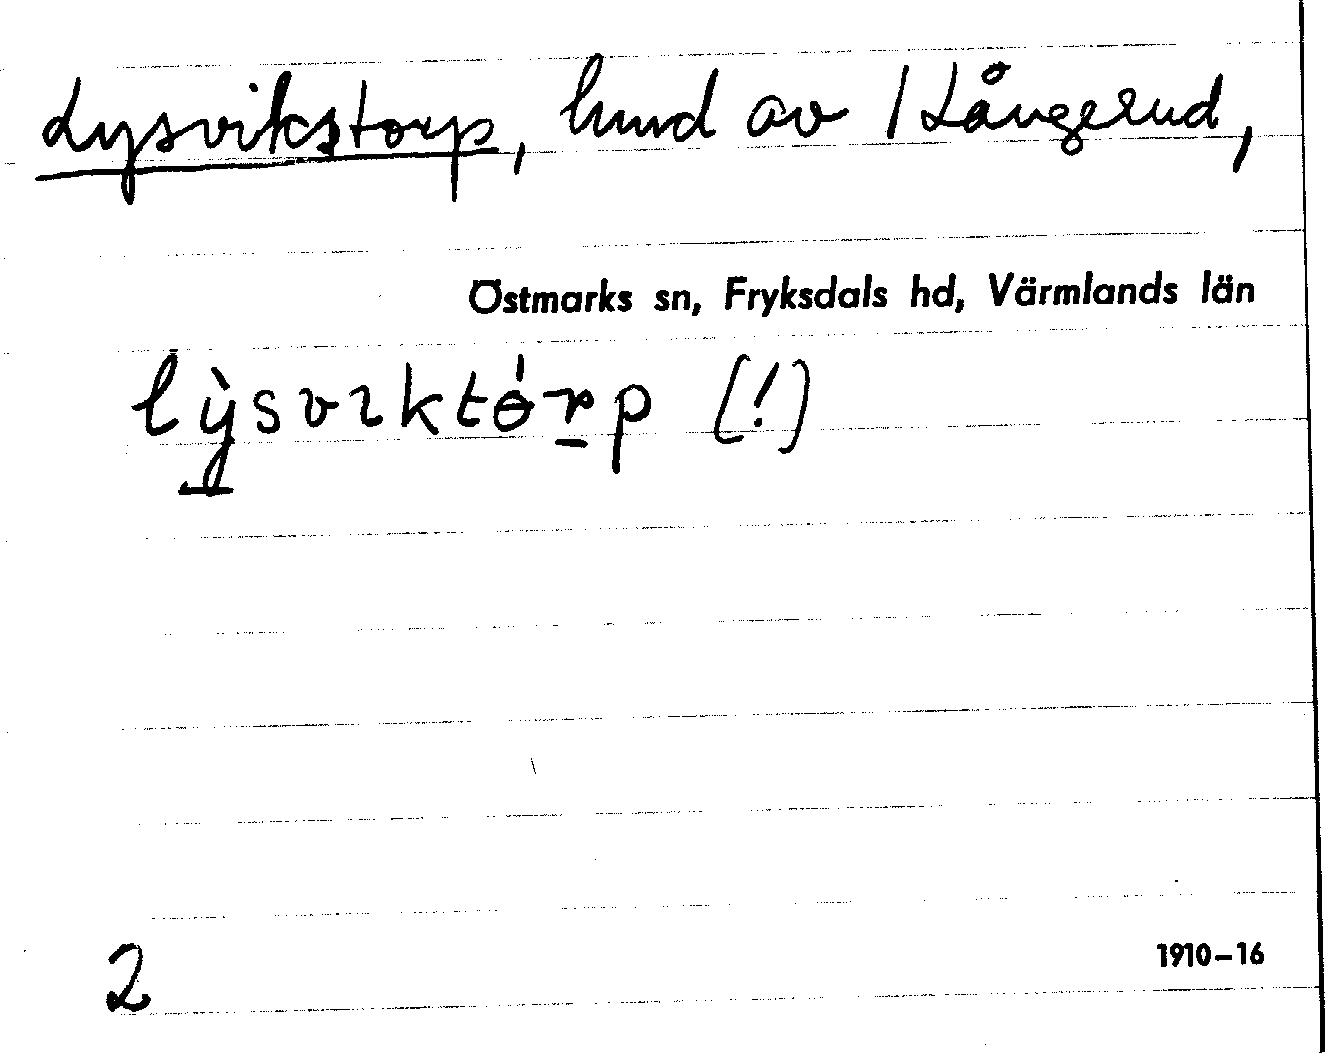 Lysvikstorp, hmd av 1 Långerud,
Östmarks sn, Fryksdals hd, Värmlands län
lỳsvıktórp [!]
2
1910–16